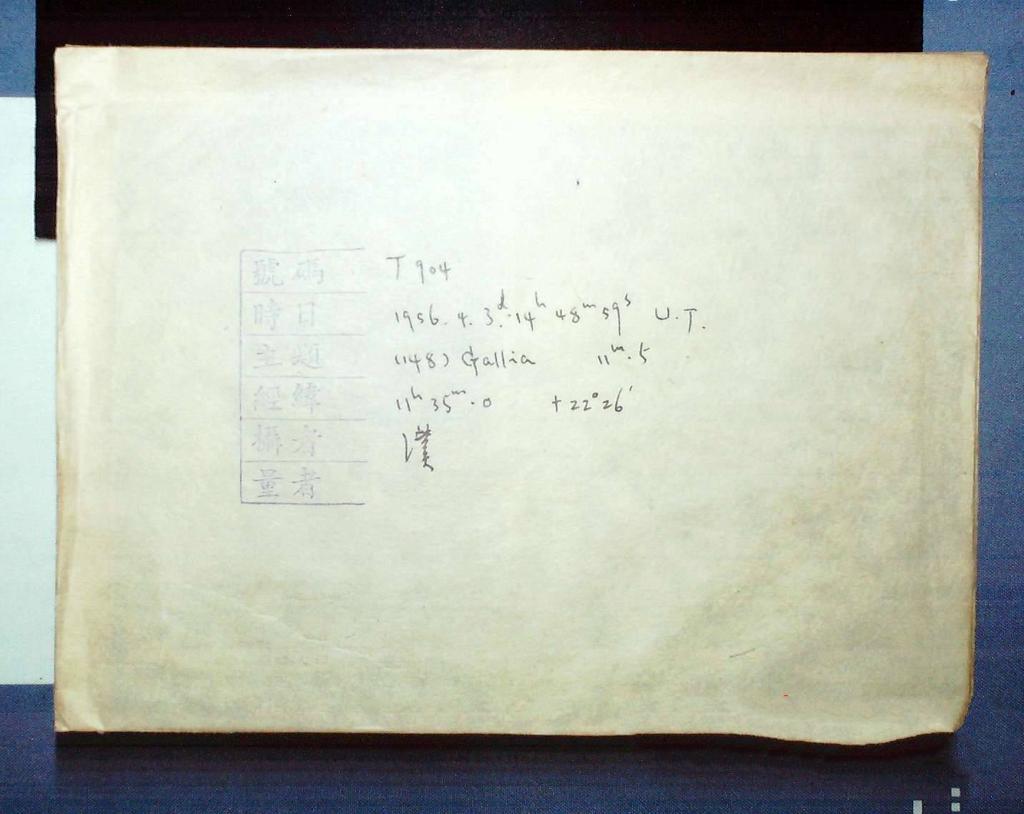 號碼 T 904
時日 1956. 4. 3.ᵈ 14ʰ 48ᵐ 59ˢ U.T.
主題 (148) Gallia 11ᵐ.5
經緯 11ʰ 35ᵐ.0 +22°26′
攝者 漢
量者